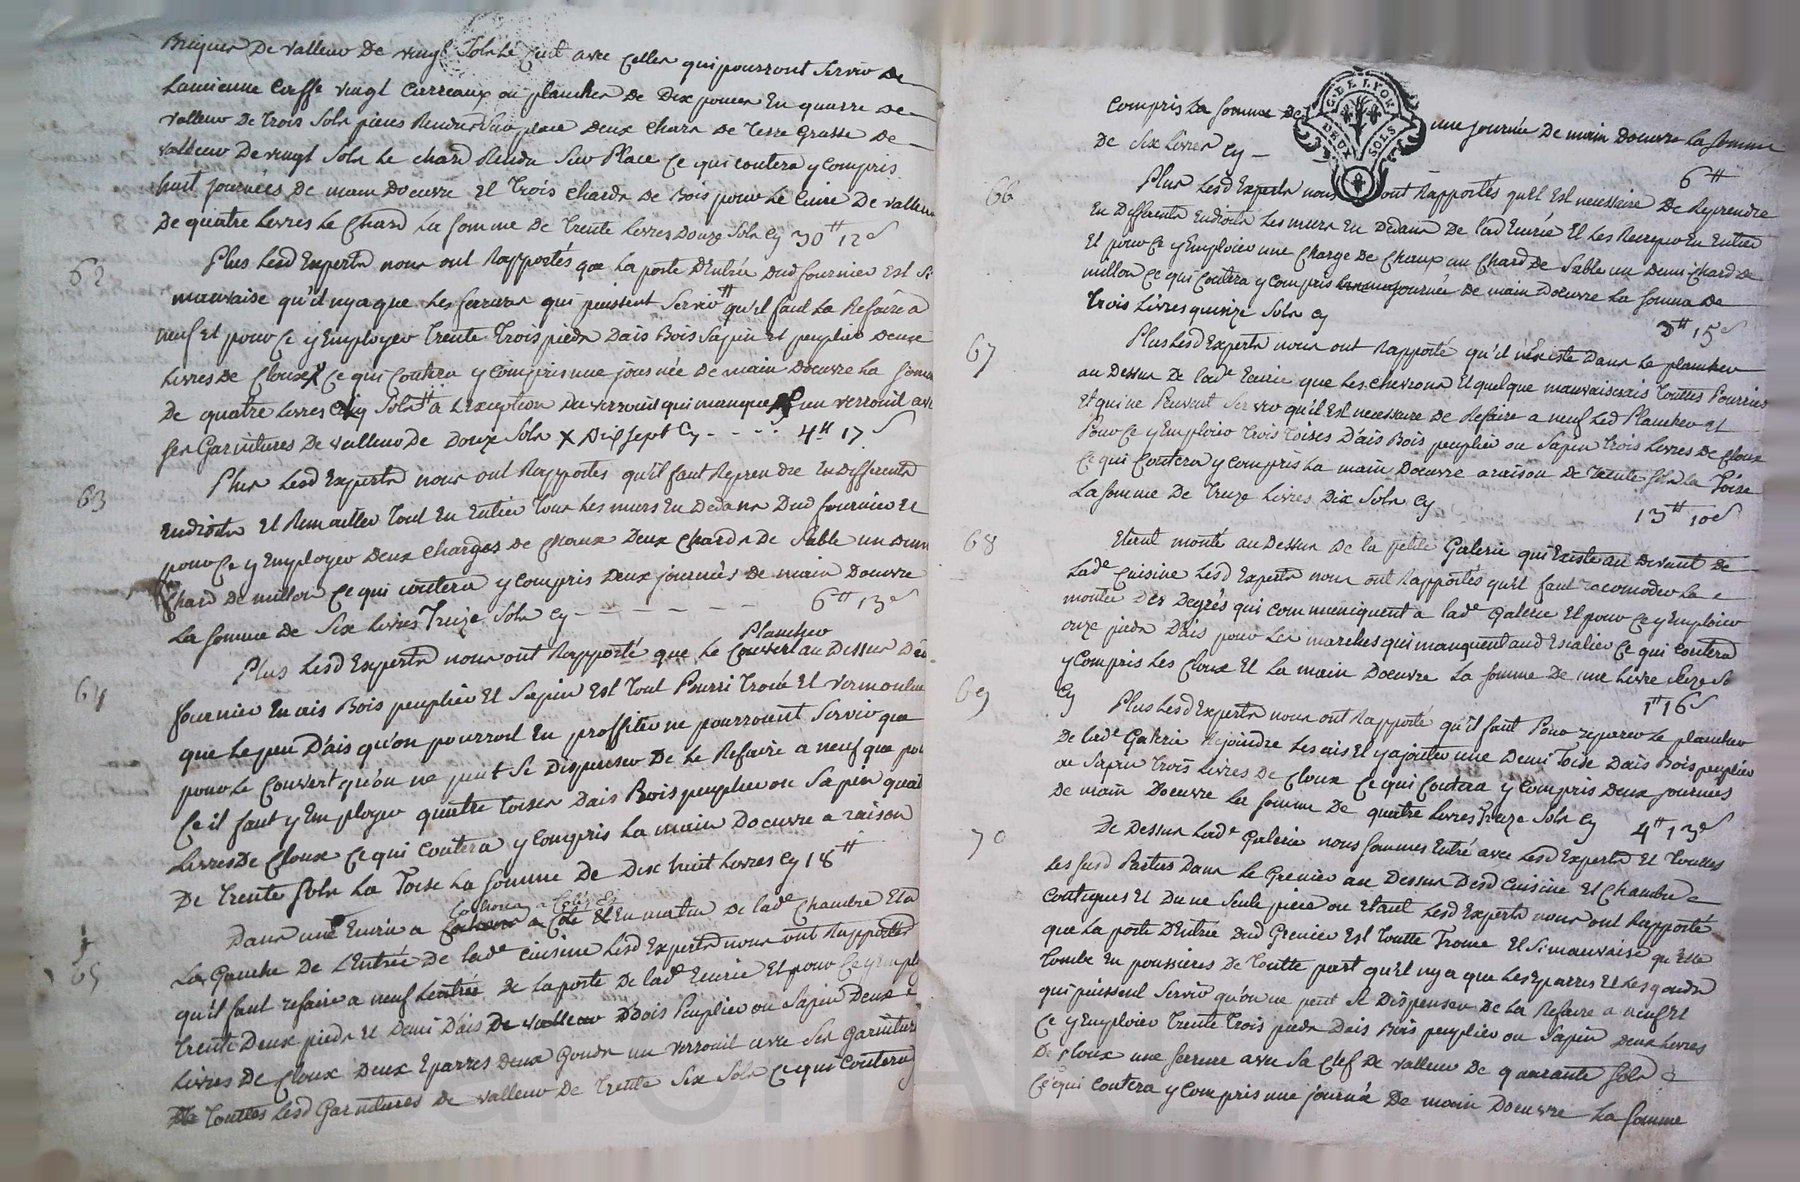 Briques De valleur De vingt Sols Le Cent avec Celles qui pourront Servir De
Lancienne Coeffe vingt Carreaux ou planches De Dix pouces En quarre De
valleur De Trois Sols pieces Rendus Sur place Deux chars De Terre Grasse De
valleur De vingt Sols Le chard Rendu Sur Place Ce qui coutera y compris
huit journées De main Doeuvre Et Trois chards De Bois pour Le Cuire De valleur
De quatre Livres Le Chard La somme De Trente Livres Douze Sols Cy 30tt 12s
62
Plus Lesd Experts nous ont Rapportés que La porte D'Entrée Dud fournier Est Si
mauvaise qu'il nya que Les ferrures qui puissent Servir qu'il faut La Refaire a
neuf Et pour Ce y Employer Trente Trois pieds Dais Bois Sapin et peuplier Deux
Livres De Cloux Ce qui Coutera y Compris une journée De main Doeuvre La somme
De quatre Livres Cinq Sols a L'exception Du verrouil qui manque un verrouil avec
Ses Garnitures De valleur De Douze Sols X Dix Sept Cy - - - - 4tt 17s
63
Plus Lesd Experts nous ont Rapportés qu'il faut Reprendre En Differents
Endroits Et Remailler Tout En Entier Tous Les murs En Dedans Dud fournier Et
pour Ce y Employer Deux Charges De Chaux Deux Chards De Sable un Demi
Chard De millon Ce qui coutera y compris Deux journées De main Doeuvre
La somme De Six Livres Treize Sols Cy - - - - - - 6tt 13s
Plancher
64
Plus Lesd Experts nous ont Rapporté que Le Couvert au Dessus Dud
fournier En ais Bois peuplier Et Sapin Est Tout Pourri Troué Et vermoulue
que Le peu D'ais qu'on pourroit En proffiter ne pourroient Servir que
pour Le Couvert qu'on ne peut Se Dispenser De Le Refaire a neuf que pour
Ce il faut y Employer quatre Toises Dais Bois peuplier ou Sapin quatre
Livres De Cloux Ce qui Coutera y Compris La main Doeuvre a raison
De Trente Sols La Toise La somme De Dix huit Livres Cy 18tt
65
Dans une Ecurie a a Coté Et En matin De lade Chambre Et a
La Gauche De L'Entrée De lade Cuisine Lesd Experts nous ont Rapportés
qu'il faut refaire a neuf Lentrée De La porte De lade Ecurie Et pour Ce y Employer
Trente Deux pieds Et Demi D'ais De valleur Dbois Peuplier ou Sapin Deux
Livres De Cloux Deux Eparres Deux Gonds un verrouil avec Ses Garnitures
De Touttes Lesd Garnitures De valleur De Trente Six Sols Ce qui Coutera
Compris La somme De une journée De main Doeuvre La somme
De Six Livres Cy - 6tt
G. DE LYON
DEUX SOLS
66
Plus Lesd Experts nous ont Rapportés qu'il Est necessaire De Reprendre
En Differents Endroits Les murs En Dedans De lad Ecurie Et Les Recrepir En Entier
Et pour Ce y Emploier une Charge De Chaux un Chard De Sable un Demi Chard De
millon Ce qui Coutera y Compris journée De main Doeuvre La somme De
Trois Livres quinze Sols Cy 3tt 15s
67
Plus Lesd Experts nous ont Rapporté qu'il n'Existe Dans Le plancher
au Dessus De lade Ecurie que Les chevrons Et quelque mauvais ais Touttes Pourries
Et qui ne Peuvent Servir qu'il Est necessaire De Refaire a neuf Led Plancher Et
Pour Ce y Emploier Trois Toises D'ais Bois peuplier ou Sapin Trois Livres De Cloux
Ce qui Coutera y compris La main Doeuvre a raison De Trente Sols La Toise
La somme De Treize Livres Dix Sols Cy 13tt 10s
68
Etant monté au Dessus De la petite Galerie qui Existe au Devant De
Lade Cuisine Lesd Experts nous ont Rapportés qu'il faut racomoder La
montée Des Degrés qui communiquent a lade Galerie Et pour Ce y Emploier
onze pieds D'ais pour Les marches qui manquent aud Escalier Ce qui Coutera
y Compris Les Cloux Et La main Doeuvre La somme De une Livre Seize So
Cy 1tt 16s
69
Plus Lesd Experts nous ont Rapporté qu'il faut Pour reparer Le plancher
De lade Galerie Rejoindre Les ais Et y ajouter une Demi Toise Dais Bois peuplier
ou Sapin Trois Livres De Cloux Ce qui Coutera y Compris Deux journées
De main Doeuvre La somme De quatre Livres Treize Sols Cy 4tt 13s
70
De Dessus Lade Galerie nous sommes Entré avec Lesd Experts Et Touttes
Les susd Parties Dans Le Grenier au Dessus Desd Cuisine Et Chambre
Contigues Et D'une Seule piece ou Etant Lesd Experts nous ont Rapporté
que La porte D'Entrée Dud Grenier Est Toutte Troue Et Si mauvaise qu'Elle
Tombe En poussieres De Toutte part qu'il nya que Les Eparres Et Les gonds
qui puissent Servir qu'on ne peut Se Dispenser De La Refaire a neuf Et
Ce y Emploier Trente Trois pieds Dais Bois peuplier ou Sapin Deux Livres
De Cloux une serrure avec Sa Clef De valleur De quarante Sols
Ce qui Coutera y Compris une journée De main Doeuvre La somme